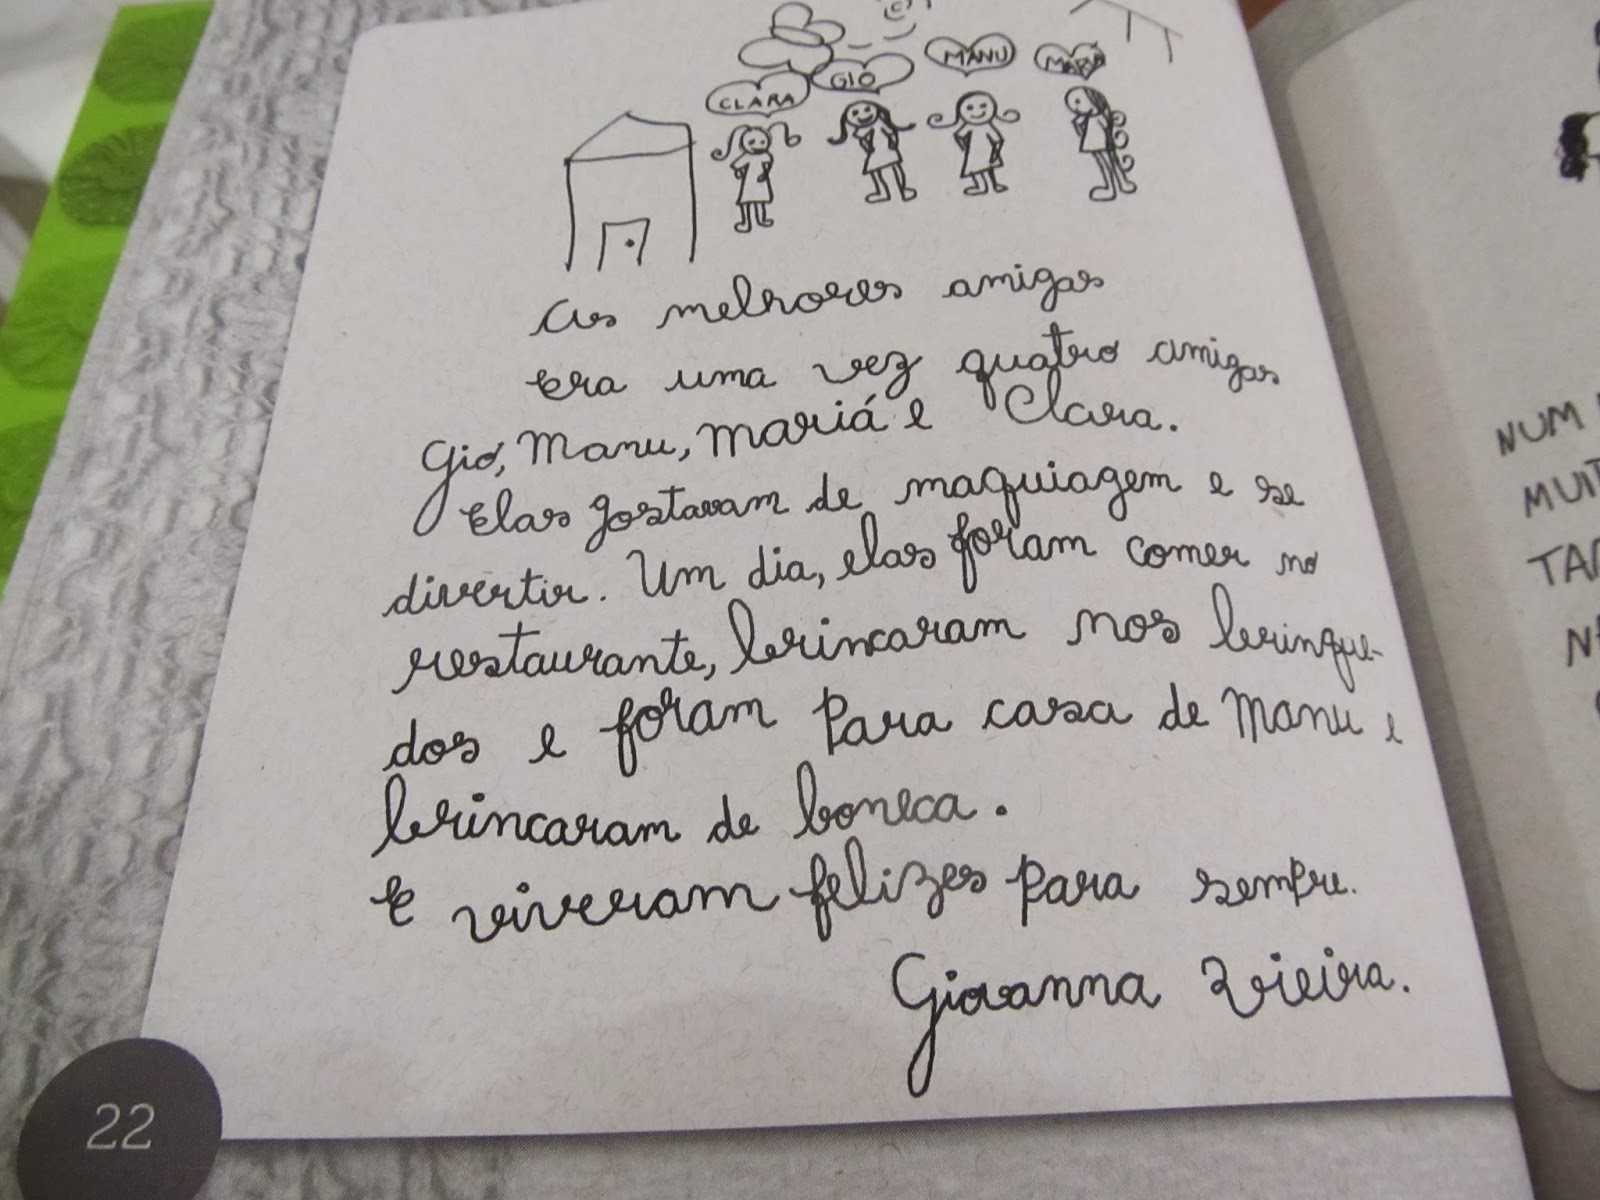 CLARA GIO MANU MARIÁ
As melhores amigas
Era uma vez quatro amigas
Gio, Manu, Mariá e Clara.
Elas gostavam de maquiagem e se
divertir. Um dia, elas foram comer no
restaurante, brincaram nos brinque-
dos e foram para casa de Manu e
brincaram de boneca.
E viveram felizes para sempre.
Giovanna Vieira.
22
NUM